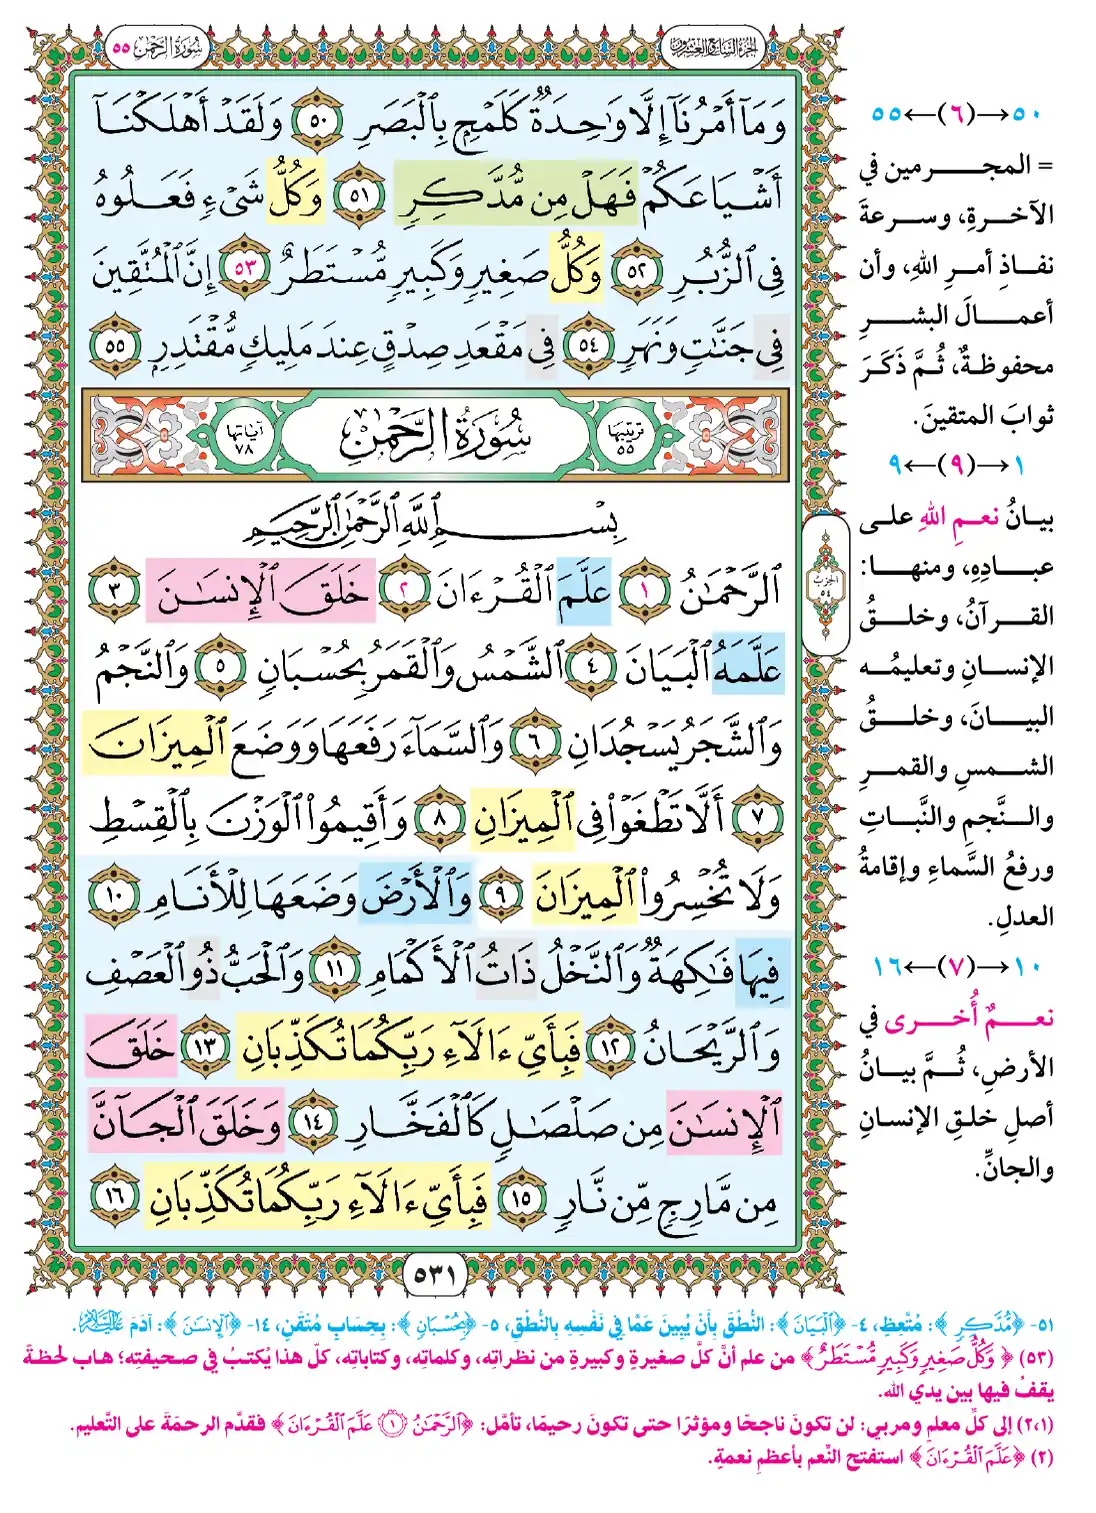 الجزء السابع والعشرون
سورة الرحمن ٥٥
وَمَآ أَمۡرُنَآ إِلَّا وَٰحِدَةٞ كَلَمۡحِۭ بِٱلۡبَصَرِ ٥٠ وَلَقَدۡ أَهۡلَكۡنَآ
أَشۡيَاعَكُمۡ فَهَلۡ مِن مُّدَّكِرٖ ٥١ وَكُلُّ شَيۡءٖ فَعَلُوهُ
فِي ٱلزُّبُرِ ٥٢ وَكُلُّ صَغِيرٖ وَكَبِيرٖ مُّسۡتَطَرٌ ٥٣ إِنَّ ٱلۡمُتَّقِينَ
فِي جَنَّٰتٖ وَنَهَرٖ ٥٤ فِي مَقۡعَدِ صِدۡقٍ عِندَ مَلِيكٖ مُّقۡتَدِرِۭ ٥٥
ترتيبها ٥٥ سُورَةُ الرَّحۡمٰن آياتها ٧٨
بِسۡمِ ٱللَّهِ ٱلرَّحۡمَٰنِ ٱلرَّحِيمِ
ٱلرَّحۡمَٰنُ ١ عَلَّمَ ٱلۡقُرۡءَانَ ٢ خَلَقَ ٱلۡإِنسَٰنَ ٣
عَلَّمَهُ ٱلۡبَيَانَ ٤ ٱلشَّمۡسُ وَٱلۡقَمَرُ بِحُسۡبَانٖ ٥ وَٱلنَّجۡمُ
وَٱلشَّجَرُ يَسۡجُدَانِ ٦ وَٱلسَّمَآءَ رَفَعَهَا وَوَضَعَ ٱلۡمِيزَانَ
٧ أَلَّا تَطۡغَوۡاْ فِي ٱلۡمِيزَانِ ٨ وَأَقِيمُواْ ٱلۡوَزۡنَ بِٱلۡقِسۡطِ
وَلَا تُخۡسِرُواْ ٱلۡمِيزَانَ ٩ وَٱلۡأَرۡضَ وَضَعَهَا لِلۡأَنَامِ ١٠
فِيهَا فَٰكِهَةٞ وَٱلنَّخۡلُ ذَاتُ ٱلۡأَكۡمَامِ ١١ وَٱلۡحَبُّ ذُو ٱلۡعَصۡفِ
وَٱلرَّيۡحَانُ ١٢ فَبِأَيِّ ءَالَآءِ رَبِّكُمَا تُكَذِّبَانِ ١٣ خَلَقَ
ٱلۡإِنسَٰنَ مِن صَلۡصَٰلٖ كَٱلۡفَخَّارِ ١٤ وَخَلَقَ ٱلۡجَآنَّ
مِن مَّارِجٖ مِّن نَّارٖ ١٥ فَبِأَيِّ ءَالَآءِ رَبِّكُمَا تُكَذِّبَانِ ١٦
٥٣١
الحزب
٥٤
٥٠→(٦)←٥٥
= المجرمين في
الآخرةِ، وسرعةَ
نفاذِ أمرِ اللهِ، وأن
أعمالَ البشرِ
محفوظةٌ، ثُمَّ ذَكَرَ
ثوابَ المتقينَ.
١→(٩)←٩
بيانُ نعمِ اللهِ على
عبادِهِ، ومنها:
القرآنُ، وخلقُ
الإنسانِ وتعليمُه
البيانَ، وخلقُ
الشمسِ والقمرِ
والنَّجمِ والنَّباتِ
ورفعُ السَّماءِ وإقامةُ
العدلِ.
١٠→(٧)←١٦
نعمٌ أُخرى في
الأرضِ، ثُمَّ بيانُ
أصلِ خلقِ الإنسانِ
والجانِّ.
٥١- ﴿مُّدَّكِرٖ﴾: مُتَّعِظٍ، ٤- ﴿ٱلۡبَيَانَ﴾: النُّطْقَ بِأَنْ يُبِينَ عَمَّا فِي نَفْسِهِ بِالنُّطْقِ، ٥- ﴿بِحُسۡبَانٖ﴾: بِحِسَابٍ مُتْقَنٍ، ١٤- ﴿ٱلۡإِنسَٰنَ﴾: آدَمَ عَلَيْهِ السَّلَامُ.
(٥٣) ﴿وَكُلُّ صَغِيرٖ وَكَبِيرٖ مُّسۡتَطَرٌ﴾ من علم أنَّ كلَّ صغيرةٍ وكبيرةٍ من نظراتِه، وكلماتِه، وكتاباتِه، كلّ هذا يُكتبُ في صحيفتِه؛ هاب لحظةً
يقفُ فيها بين يدي الله.
(٢،١) إلى كلِّ معلمٍ ومربي: لن تكونَ ناجحًا ومؤثرًا حتى تكونَ رحيمًا، تأمَّل: ﴿ٱلرَّحۡمَٰنُ ١ عَلَّمَ ٱلۡقُرۡءَانَ﴾ فقدَّم الرحمَةَ على التَّعليم.
(٢) ﴿عَلَّمَ ٱلۡقُرۡءَانَ﴾ استفتح النِّعم بأعظمِ نعمةٍ.